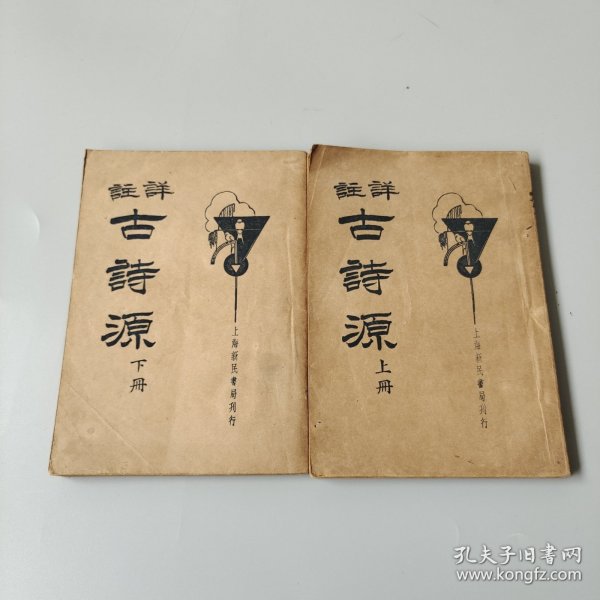 詳註
古詩源
下冊
上海新民書局刊行
詳註
古詩源
上冊
上海新民書局刊行
孔夫子旧書网
www.kongfz.com